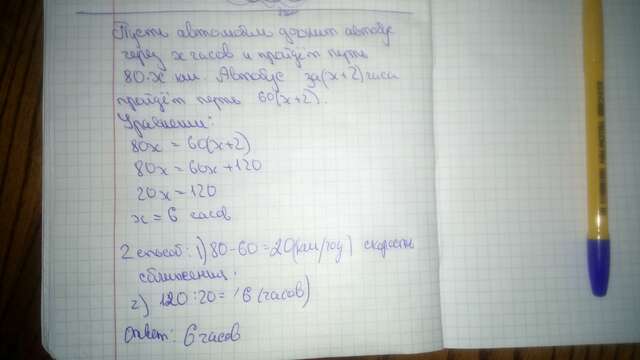 Пусть автомобиль догонит автобус
через x часов и пройдёт путь
80·x км. Автобус за (x+2) часа
пройдёт путь 60(x+2).
Уравнение:
80x = 60(x+2)
80x = 60x + 120
20x = 120
x = 6 часов
2 способ: 1) 80-60=20 (км/год) скорость
сближения.
2) 120:20= 6 (часов)
Ответ: 6 часов